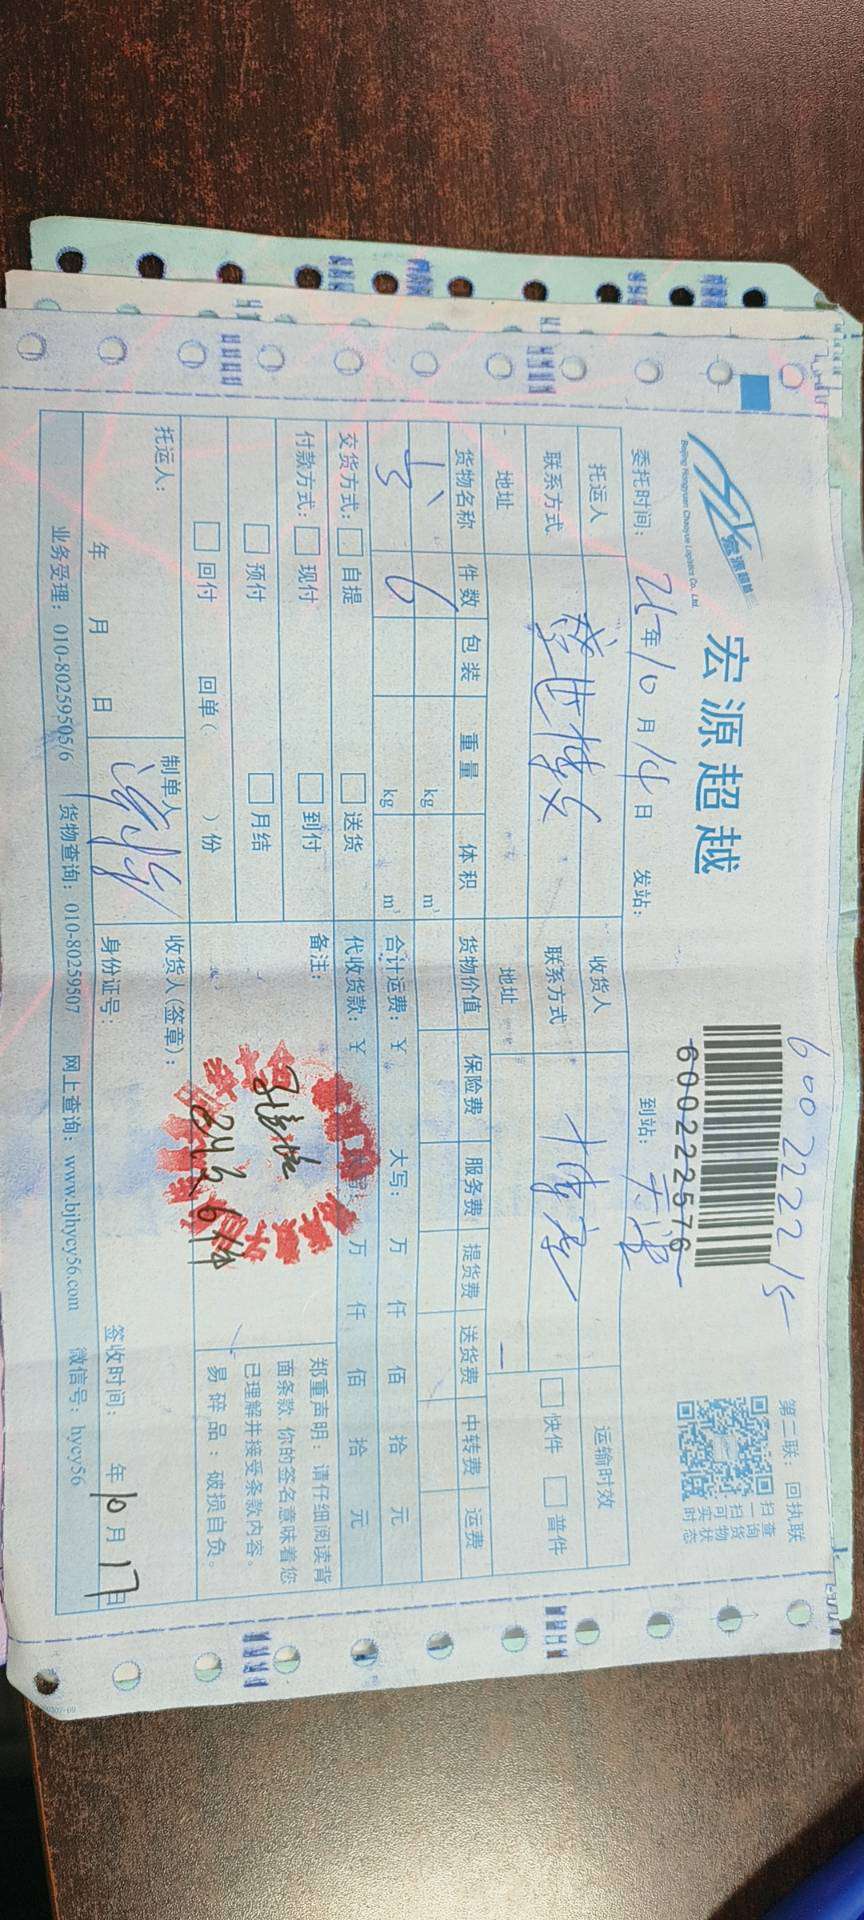 600222215
第二联：回执联
宏源超越
Beijing Hongyuan Chaoyue Logistics Co., Ltd.
宏源超越
600222576
扫一扫可实时
查询货物状态
委托时间：25年10月14日 发站： 到站：天津
托运人 收货人 运输时效
联系方式 联系方式 快件 普件
地址 地址
货物名称 件数 包装 重量 体积 货物价值 保险费 服务费 提货费 送货费 中转费 运费
6 kg m³
kg m³ 合计运费：￥ 大写： 万 仟 佰 拾 元
交货方式： 自提 送货 代收货款：￥ 万 仟 佰 拾 元
付款方式： 现付 到付 备注：
预付 月结
回付 回单（ ）份
郑重声明：请仔细阅读背
面条款,你的签名意味着您
已理解并接受条款内容。
易碎品：破损自负。
6件
托运人： 制单人 收货人(签章)：
年 月 日 身份证号： 签收时间： 年10月17日
业务受理：010-80259505/6 货物查询：010-80259507 网上查询：www.bjhycy56.com 微信号：hycy56